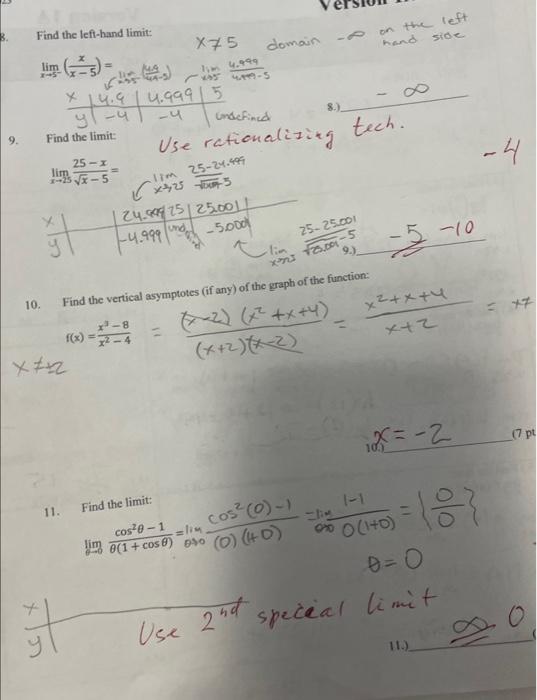 Version
8. Find the left-hand limit:
x≠5 domain -∞ on the left hand side
lim x→5⁻ (x/(x-5)) = lim x→5 (4.9/(4.9-5)) lim x→5 4.999/(4.999-5)
x | 4.9 | 4.999 | 5
y | -4 | -4 | undefined
8.) -∞
9. Find the limit:
Use rationalizing tech.
-4
lim x→25 (25-x)/(√x-5) =
lim x→25
x | 24.999 | 25 | 25.001
y | -4.999 | und | -5.0001
lim x→25 (25-25.001)/(√25.001-5)
9.) -5 -10
10. Find the vertical asymptotes (if any) of the graph of the function:
f(x) = (x³-8)/(x²-4) = (x-2)(x²+x+4)/((x+2)(x-2)) = (x²+x+4)/(x+2) =
x≠±2
10.) x = -2 (7 pt
11. Find the limit:
lim θ→0 (cos²θ-1)/(θ(1+cosθ)) = lim θ→0 (cos²(0)-1)/((0)(1+0)) = lim θ→0 (1-1)/(0(1+0)) = {0/0}
θ=0
x
y
Use 2nd special limit
11.) ∞ 0